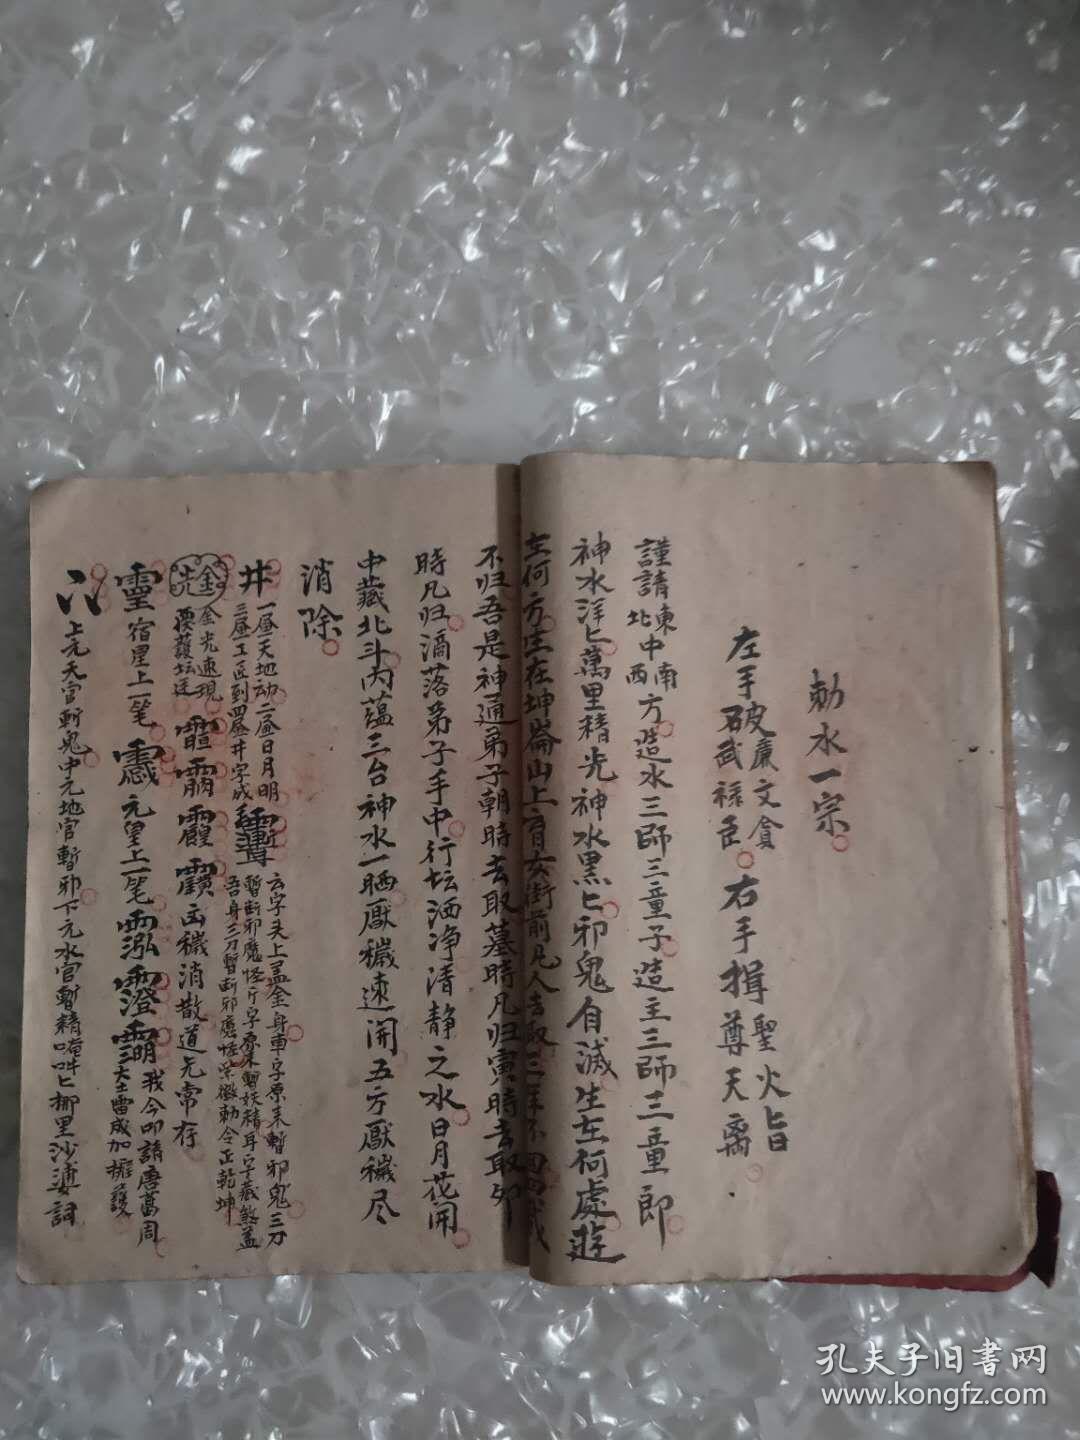 勅水一宗
左手破廉文貪
武祿巨 右手揖聖火旨
尊天离
謹請東南中西北方造水三師三童子造主三師三童郎
神水洋匕萬里精光神水黑匕邪鬼自滅生在何處遊
在何方生在坤崙山上 前凡人去取三年不回
不归吾是神通弟子朝時去取墓時凡归寅時去取卯
時凡归酒落弟子手中行坛洒净清静之水日月花開
中藏北斗内蕴三台神水一晒厭穢速開五方厭穢尽
消除
井 一昼天地动二昼日月明
三昼工匠到四昼井字成 云字头上盖金身車字原来暫邪鬼三刀
暫断邪魔怪斤字原来暫妖精耳字藏煞盖
吾身三刀暫断邪魔怪紫微勅令正乾坤
金光速現
覆護坛廷 凶穢消散道炁常存
靈 宿星上一笔 元皇上一笔 我今叩請唐葛周
三大土雷成加擁護
上元天官斬鬼中元地官暫邪下元水官暫精唵吽匕挪里沙婆訶
孔夫子旧書网
www.kongfz.com